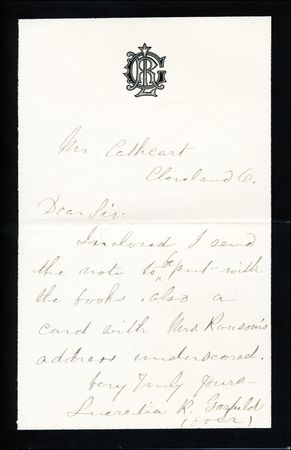 Mr. Cathcart
Cleveland O.
Dear Sir:
Inclosed I send
the note to be put with
the books. also a
card with Mrs. Ransom's
address underscored.
Very Truly Yours—
Lucretia R. Garfield
(over)